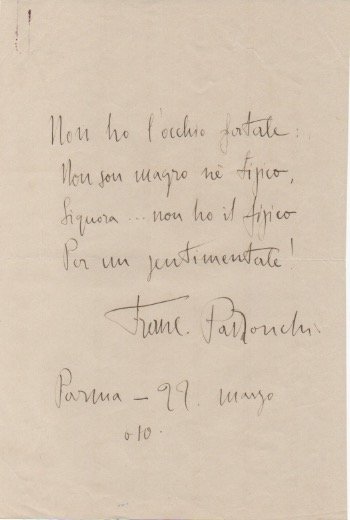 Non ho l'occhio fatale:
Non son magro nè tisico,
Signora ... non ho il fisico
Per un sentimentale!
Franc. Pastonchi
Parma – 22. marzo
910.